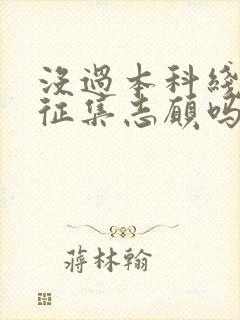 没過本科綫
征集志願吗
蔣林翰